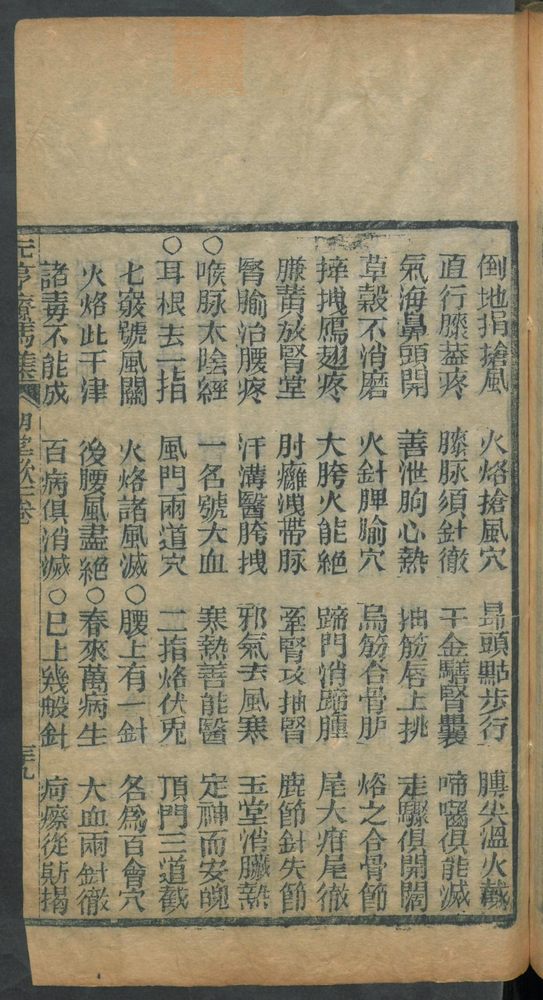 倒地捐搶風　火烙搶風穴　昻頭點步行　膊尖溫火烙
直行膝蓋疼　膝脉須針徹　千金騸腎囊　啼嚙俱能滅
氣海鼻頭開　善泄胸心熱　抽筋唇上挑　走驟俱開闊
草穀不消磨　火針脾腧穴　烏筋合骨胪　烙之合骨節
摔拽鴈翅疼　大胯火能絶　蹄門消蹄腫　尾大疳尾徹
臁黃放腎堂　肘癰洩帶脉　牽腎攻抽腎　鹿節針失節
腎腧治腰疼　汗溝醫胯拽　邪氣去風寒　玉堂消臟熱
○喉脉太陰經　一名號大血　寒熱善能醫　定神而安魄
○耳根去一指　風門兩道穴　二指烙伏兎　頂門三道截
七竅號風關　火烙諸風滅○腰上有一針　各爲百會穴
火烙此干津　後腰風盡絶○春來萬病生　大血兩針徹
諸毒不能成　百病俱消滅○巳上幾般針　疴瘵從斯揭
元亨療馬集　卷一　三十九